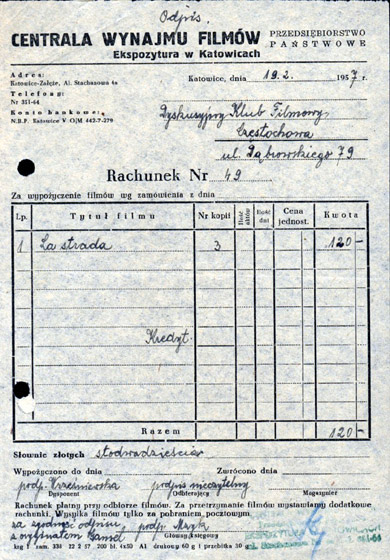 Odpis.
CENTRALA WYNAJMU FILMÓW
Ekspozytura w Katowicach
PRZEDSIĘBIORSTWO
PAŃSTWOWE
Adres:
Katowice-Załęże, Al. Stachanowa 4a
Telefony:
Nr 351-64
Konto bankowe:
N.B.P. Katowice V O/M 442-7-279
Katowice, dnia 19.2. 1957 r.
Dyskusyjny Klub Filmowy
Częstochowa
ul. Dąbrowskiego 79
Rachunek Nr 49
Za wypożyczenie filmów wg zamówienia z dnia
Lp. Tytuł filmu Nr kopii Ilość aktów Ilość dni Cena jednost. Kwota
1 La strada 3 120 -
Kredyt.
Razem 120 -
Słownie złotych stodwadzieścia
Wypożyczono do dnia Zwrócono dnia
podp. podpis nieczytelny
Dysponent Odbierający Magazynier
Rachunek płatny przy odbiorze filmów. Za przetrzymanie filmów wystawiamy dodatkowe
rachunki. Wysyłka filmów tylko za pobraniem pocztowym.
za zgodność odpisu podp.
z oryginałem
Główny księgowy